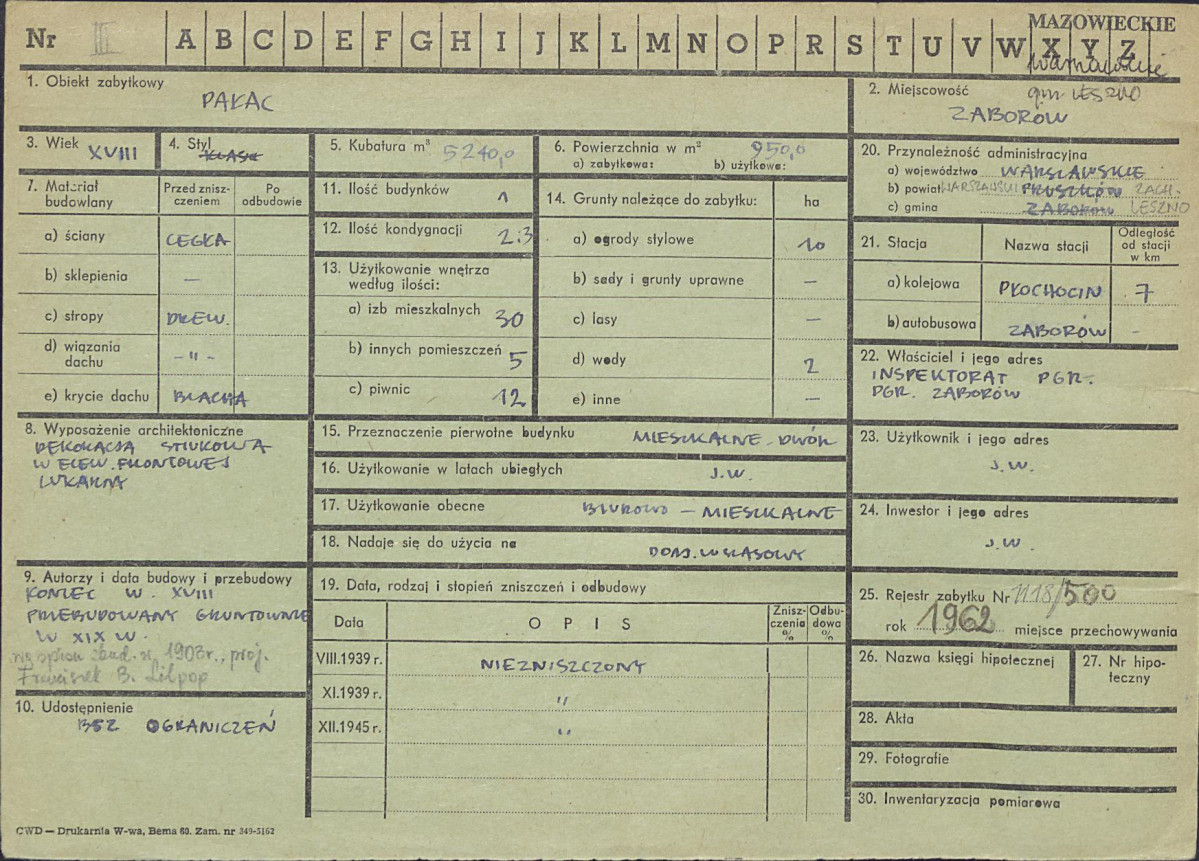 MAZOWIECKIE
Nr III A B C D E F G H I J K L M N O P R S T U V W X Y Z
warszawskie
1. Obiekt zabytkowy
PAŁAC
2. Miejscowość gm. LESZNO
ZABORÓW
3. Wiek XVIII
4. Styl KLASY
5. Kubatura m³ 5240,0
6. Powierzchnia w m² 950,0
a) zabytkowa: b) użytkowa:
7. Materiał budowlany
Przed zniszczeniem
Po odbudowie
a) ściany CEGŁA
b) sklepienia —
c) stropy DREW.
d) wiązania dachu — " —
e) krycie dachu BLACHA
8. Wyposażenie architektoniczne
DEKORACJA STIUKOWA
W ELEW. FRONTOWEJ
LUKARNA
9. Autorzy i data budowy i przebudowy
KONIEC W. XVIII
PRZEBUDOWANY GRUNTOWNIE
W XIX W.
zbud. w 1903r., proj.
Franciszek B. Lilpop
10. Udostępnienie
BEZ OGRANICZEŃ
11. Ilość budynków 1
12. Ilość kondygnacji 2:3
13. Użytkowanie wnętrza
według ilości:
a) izb mieszkalnych 30
b) innych pomieszczeń 5
c) piwnic 12
14. Grunty należące do zabytku: ha
a) ogrody stylowe 10
b) sady i grunty uprawne —
c) lasy —
d) wody 2
e) inne —
15. Przeznaczenie pierwotne budynku MIESZKALNE DWÓR
16. Użytkowanie w latach ubiegłych J.W.
17. Użytkowanie obecne BIUROWO — MIESZKALNE
18. Nadaje się do użycia na DOM. WCZASOWY
19. Data, rodzaj i stopień zniszczeń i odbudowy
Data OPIS Zniszczenia % Odbudowa %
VIII.1939 r. NIEZNISZCZONY
XI.1939 r. "
XII.1945 r. "
20. Przynależność administracyjna
a) województwo WARSZAWSKIE
b) powiat WARSZAWSKI PRUSZKÓW ZACH.
c) gmina ZABORÓW LESZNO
21. Stacja Nazwa stacji Odległość od stacji w km
a) kolejowa PŁOCHOCIN 7
b) autobusowa ZABORÓW -
22. Właściciel i jego adres
INSPEKTORAT PGR.
PGR. ZABORÓW
23. Użytkownik i jego adres
J.W.
24. Inwestor i jego adres
J.W.
25. Rejestr zabytku Nr 1118/500
rok 1962 miejsce przechowywania
26. Nazwa księgi hipotecznej
27. Nr hipoteczny
28. Akta
29. Fotografie
30. Inwentaryzacja pomiarowa
CWD — Drukarnia W-wa, Bema 60. Zam. nr 349-5162